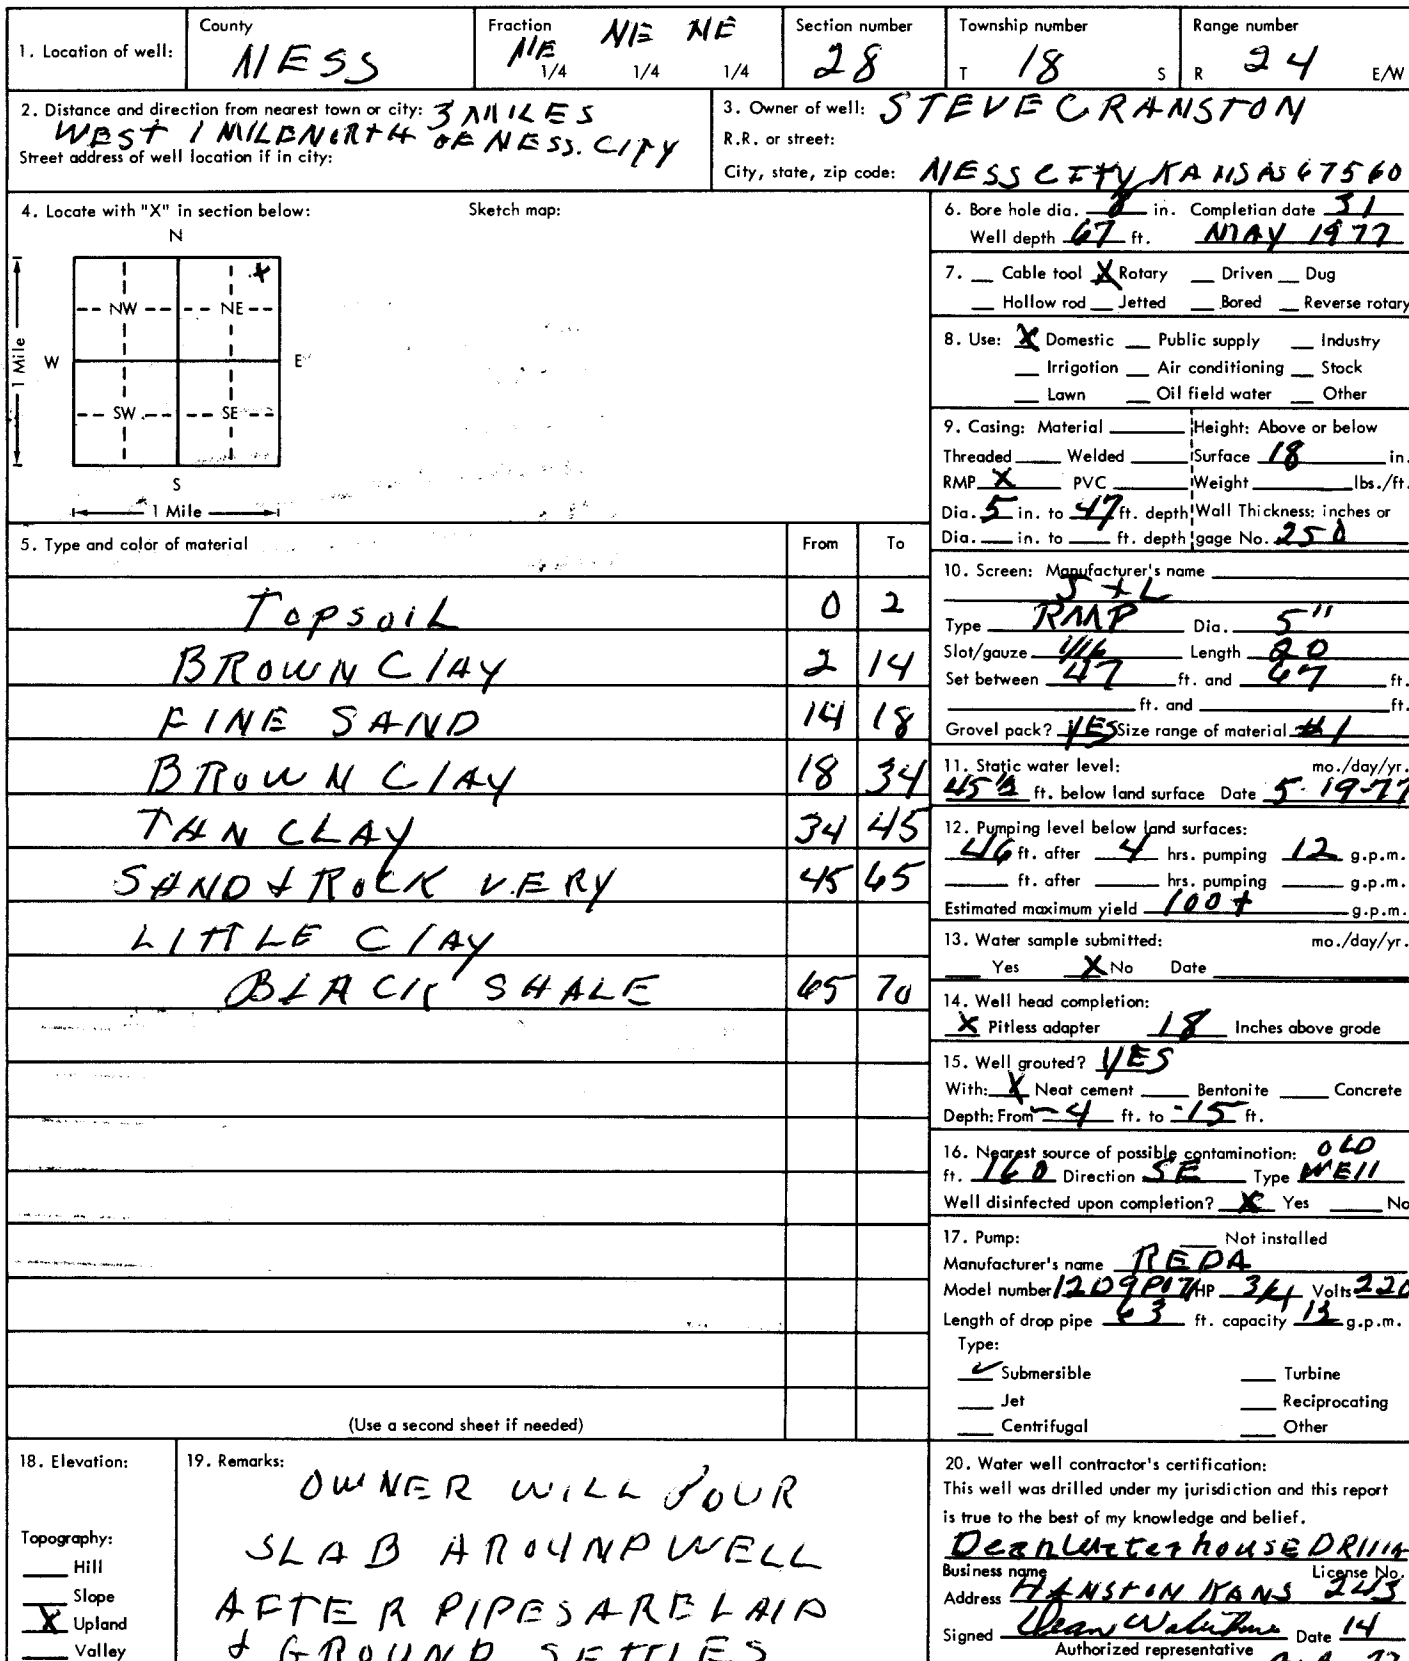 1. Location of well: County NESS Fraction NE 1/4 NE 1/4 NE 1/4 Section number 28 Township number T 18 S Range number R 24 E/W
2. Distance and direction from nearest town or city: 3 MILES
WEST 1 MILE NORTH OF NESS. CITY
Street address of well location if in city:
3. Owner of well: STEVE CRANSTON
R.R. or street:
City, state, zip code: NESS CITY KANSAS 67560
4. Locate with "X" in section below: Sketch map:
N
X
NW NE
W E
SW SE
S
1 Mile
1 Mile
5. Type and color of material From To
Topsoil 0 2
BROWN CLAY 2 14
FINE SAND 14 18
BROWN CLAY 18 34
TAN CLAY 34 45
SAND & ROCK VERY 45 65
LITTLE CLAY
BLACK SHALE 65 70
(Use a second sheet if needed)
6. Bore hole dia. 8 in. Completian date 31
Well depth 67 ft. MAY 1977
7. Cable tool X Rotary Driven Dug
Hollow rod Jetted Bored Reverse rotary
8. Use: X Domestic Public supply Industry
Irrigotion Air conditioning Stock
Lawn Oil field water Other
9. Casing: Material Height: Above or below
Threaded Welded Surface 18 in.
RMP X PVC Weight lbs./ft.
Dia. 5 in. to 47 ft. depth Wall Thickness: inches or
Dia. in. to ft. depth gage No. 250
10. Screen: Manufacturer's name
J + L
Type RMP Dia. 5"
Slot/gauze 1/16 Length 20
Set between 47 ft. and 67 ft.
ft. and ft.
Grovel pack? YES Size range of material #1
11. Static water level: mo./day/yr.
45 ft. below land surface Date 5-19-77
12. Pumping level below land surfaces:
46 ft. after 4 hrs. pumping 12 g.p.m.
ft. after hrs. pumping g.p.m.
Estimated maximum yield 100+ g.p.m.
13. Water sample submitted: mo./day/yr.
Yes X No Date
14. Well head completion:
X Pitless adapter 18 Inches above grode
15. Well grouted? YES
With: X Neat cement Bentonite Concrete
Depth: From -4 ft. to -15 ft.
16. Nearest source of possible contaminotion: OLD
ft. 160 Direction SE Type WELL
Well disinfected upon completion? X Yes No
17. Pump: Not installed
Manufacturer's name REDA
Model number HP 3/4 Volts 220
Length of drop pipe 63 ft. capacity 13 g.p.m.
Type:
✓ Submersible Turbine
Jet Reciprocating
Centrifugal Other
18. Elevation:
Topography:
Hill
Slope
X Upland
Valley
19. Remarks:
OWNER WILL POUR
SLAB AROUND WELL
AFTER PIPES ARE LAID
& GROUND SETTLES
20. Water well contractor's certification:
This well was drilled under my jurisdiction and this report
is true to the best of my knowledge and belief.
Dean Waterhouse DRIllg
Business name License No.
Address HANSTON KANS 243
Signed Dean Waterhouse Date 14
Authorized representative